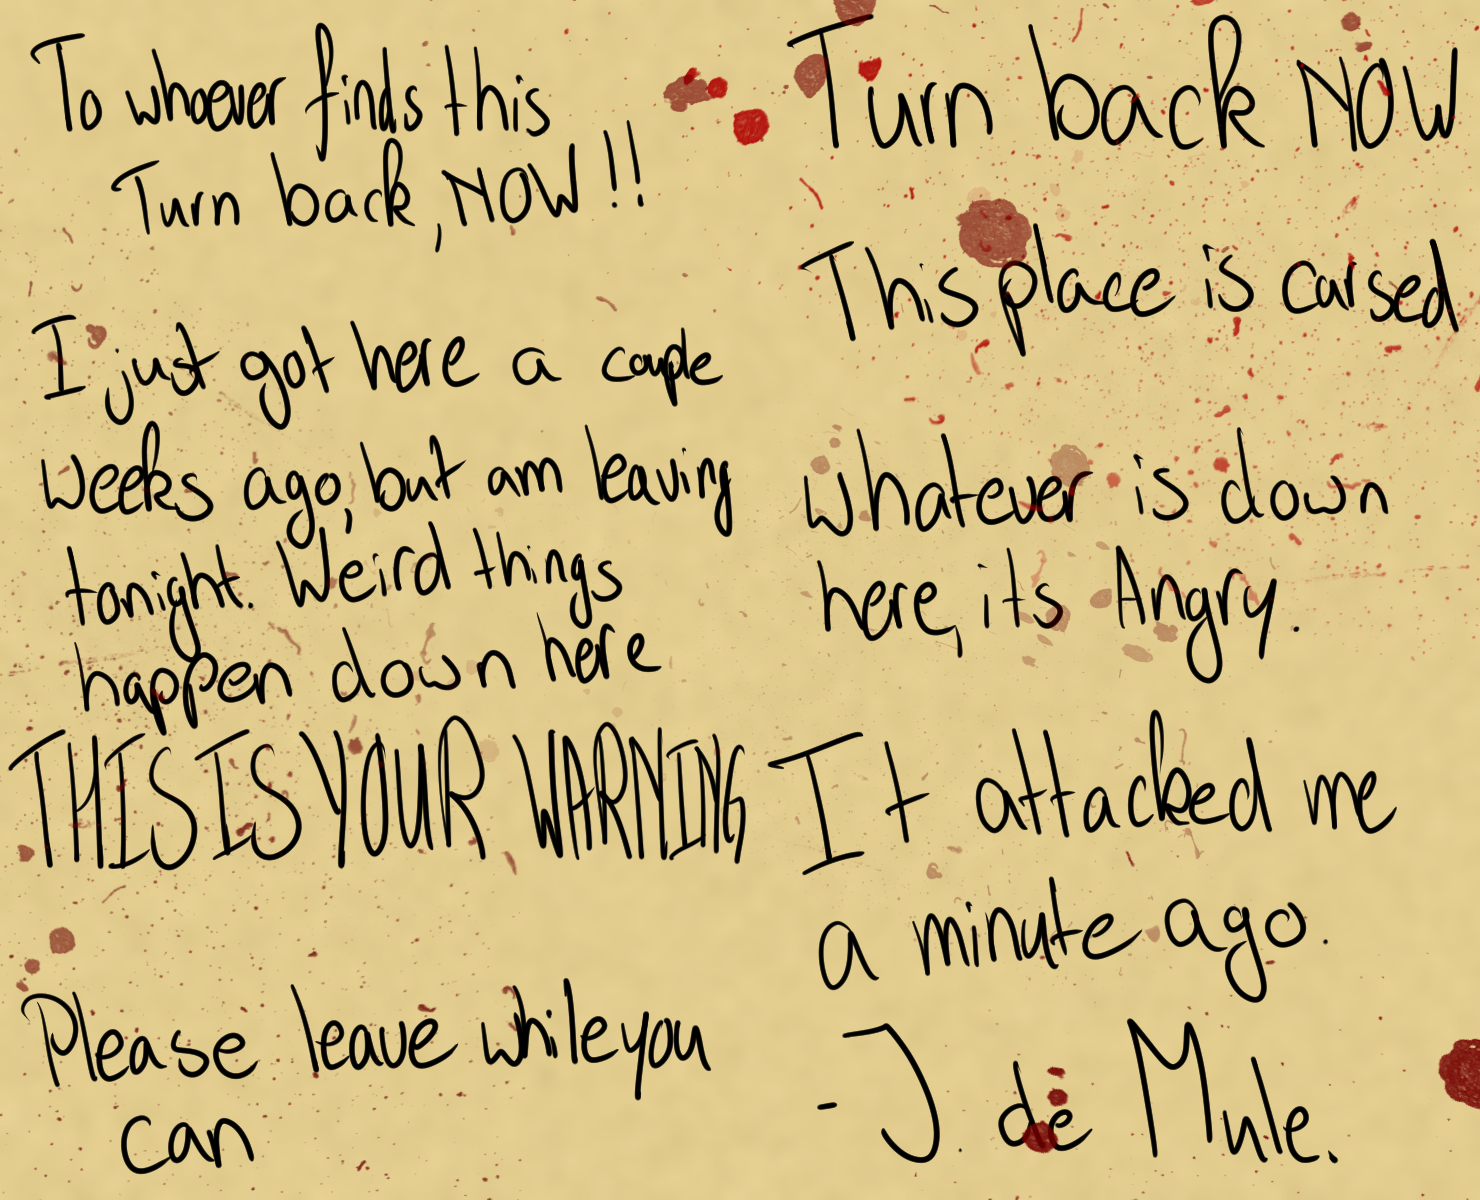 To whoever finds this
Turn back, NOW!!
I just got here a couple
weeks ago, but am leaving
tonight. Weird things
happen down here
THIS IS YOUR WARNING
Please leave while you
can
Turn back NOW
This place is cursed
whatever is down
here, its Angry.
It attacked me
a minute ago.
- J. de Mule.